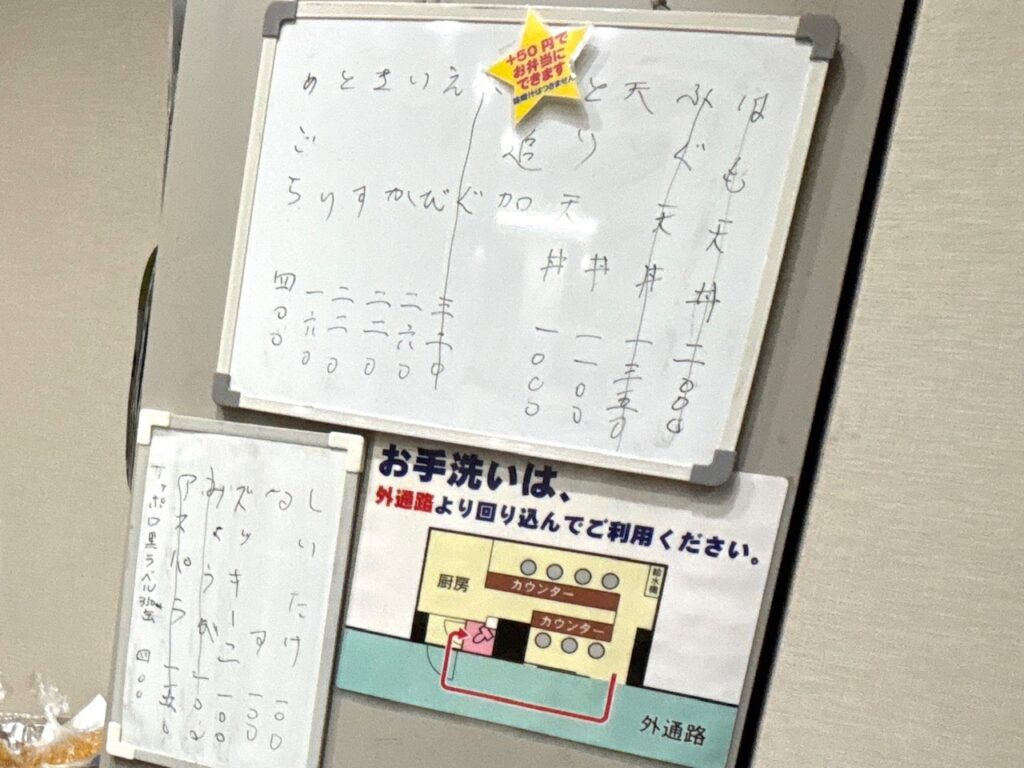 +50円で
お弁当に
できます
味噌汁はつきません
はも天丼 二〇〇〇
ふぐ天丼 一三五〇
天丼 一一〇〇
とり天丼 一〇〇〇
追加
ぐ 三二〇
えび 二六〇
いか 二二〇
きす 二二〇
とり 一六〇
めごち 四〇〇
しいたけ 一〇〇
なす 一〇〇
ズッキーニ 一〇〇
みょうが 一〇〇
アスパラ 一五〇
サッポロ黒ラベル 350ml缶 四〇〇
お手洗いは、
外通路より回り込んでご利用ください。
厨房
カウンター
給水機
カウンター
外通路